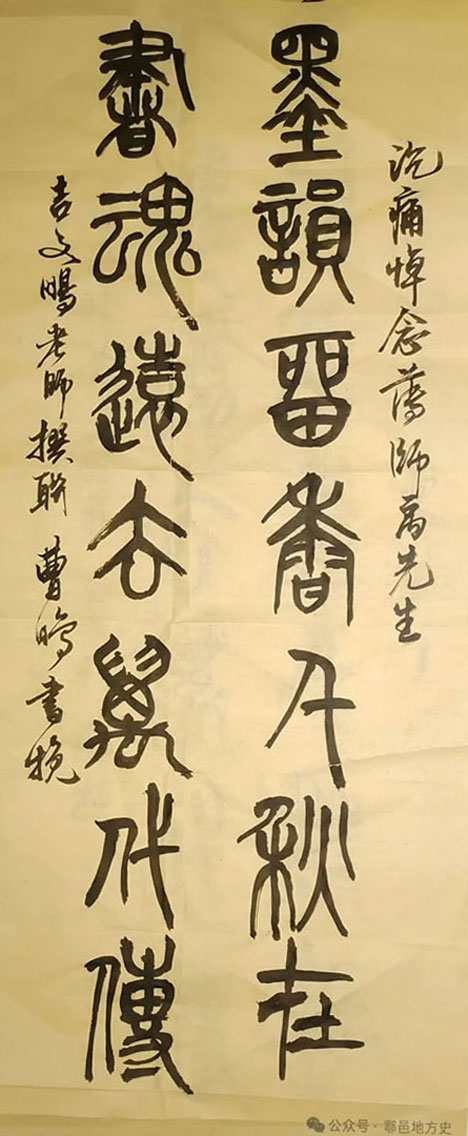 沉痛悼念薄師高先生
墨韻留香千秋在
書魂遠去萬代傳
吉文鵬老師撰聯 曹書挽
公众号·鄠邑地方史